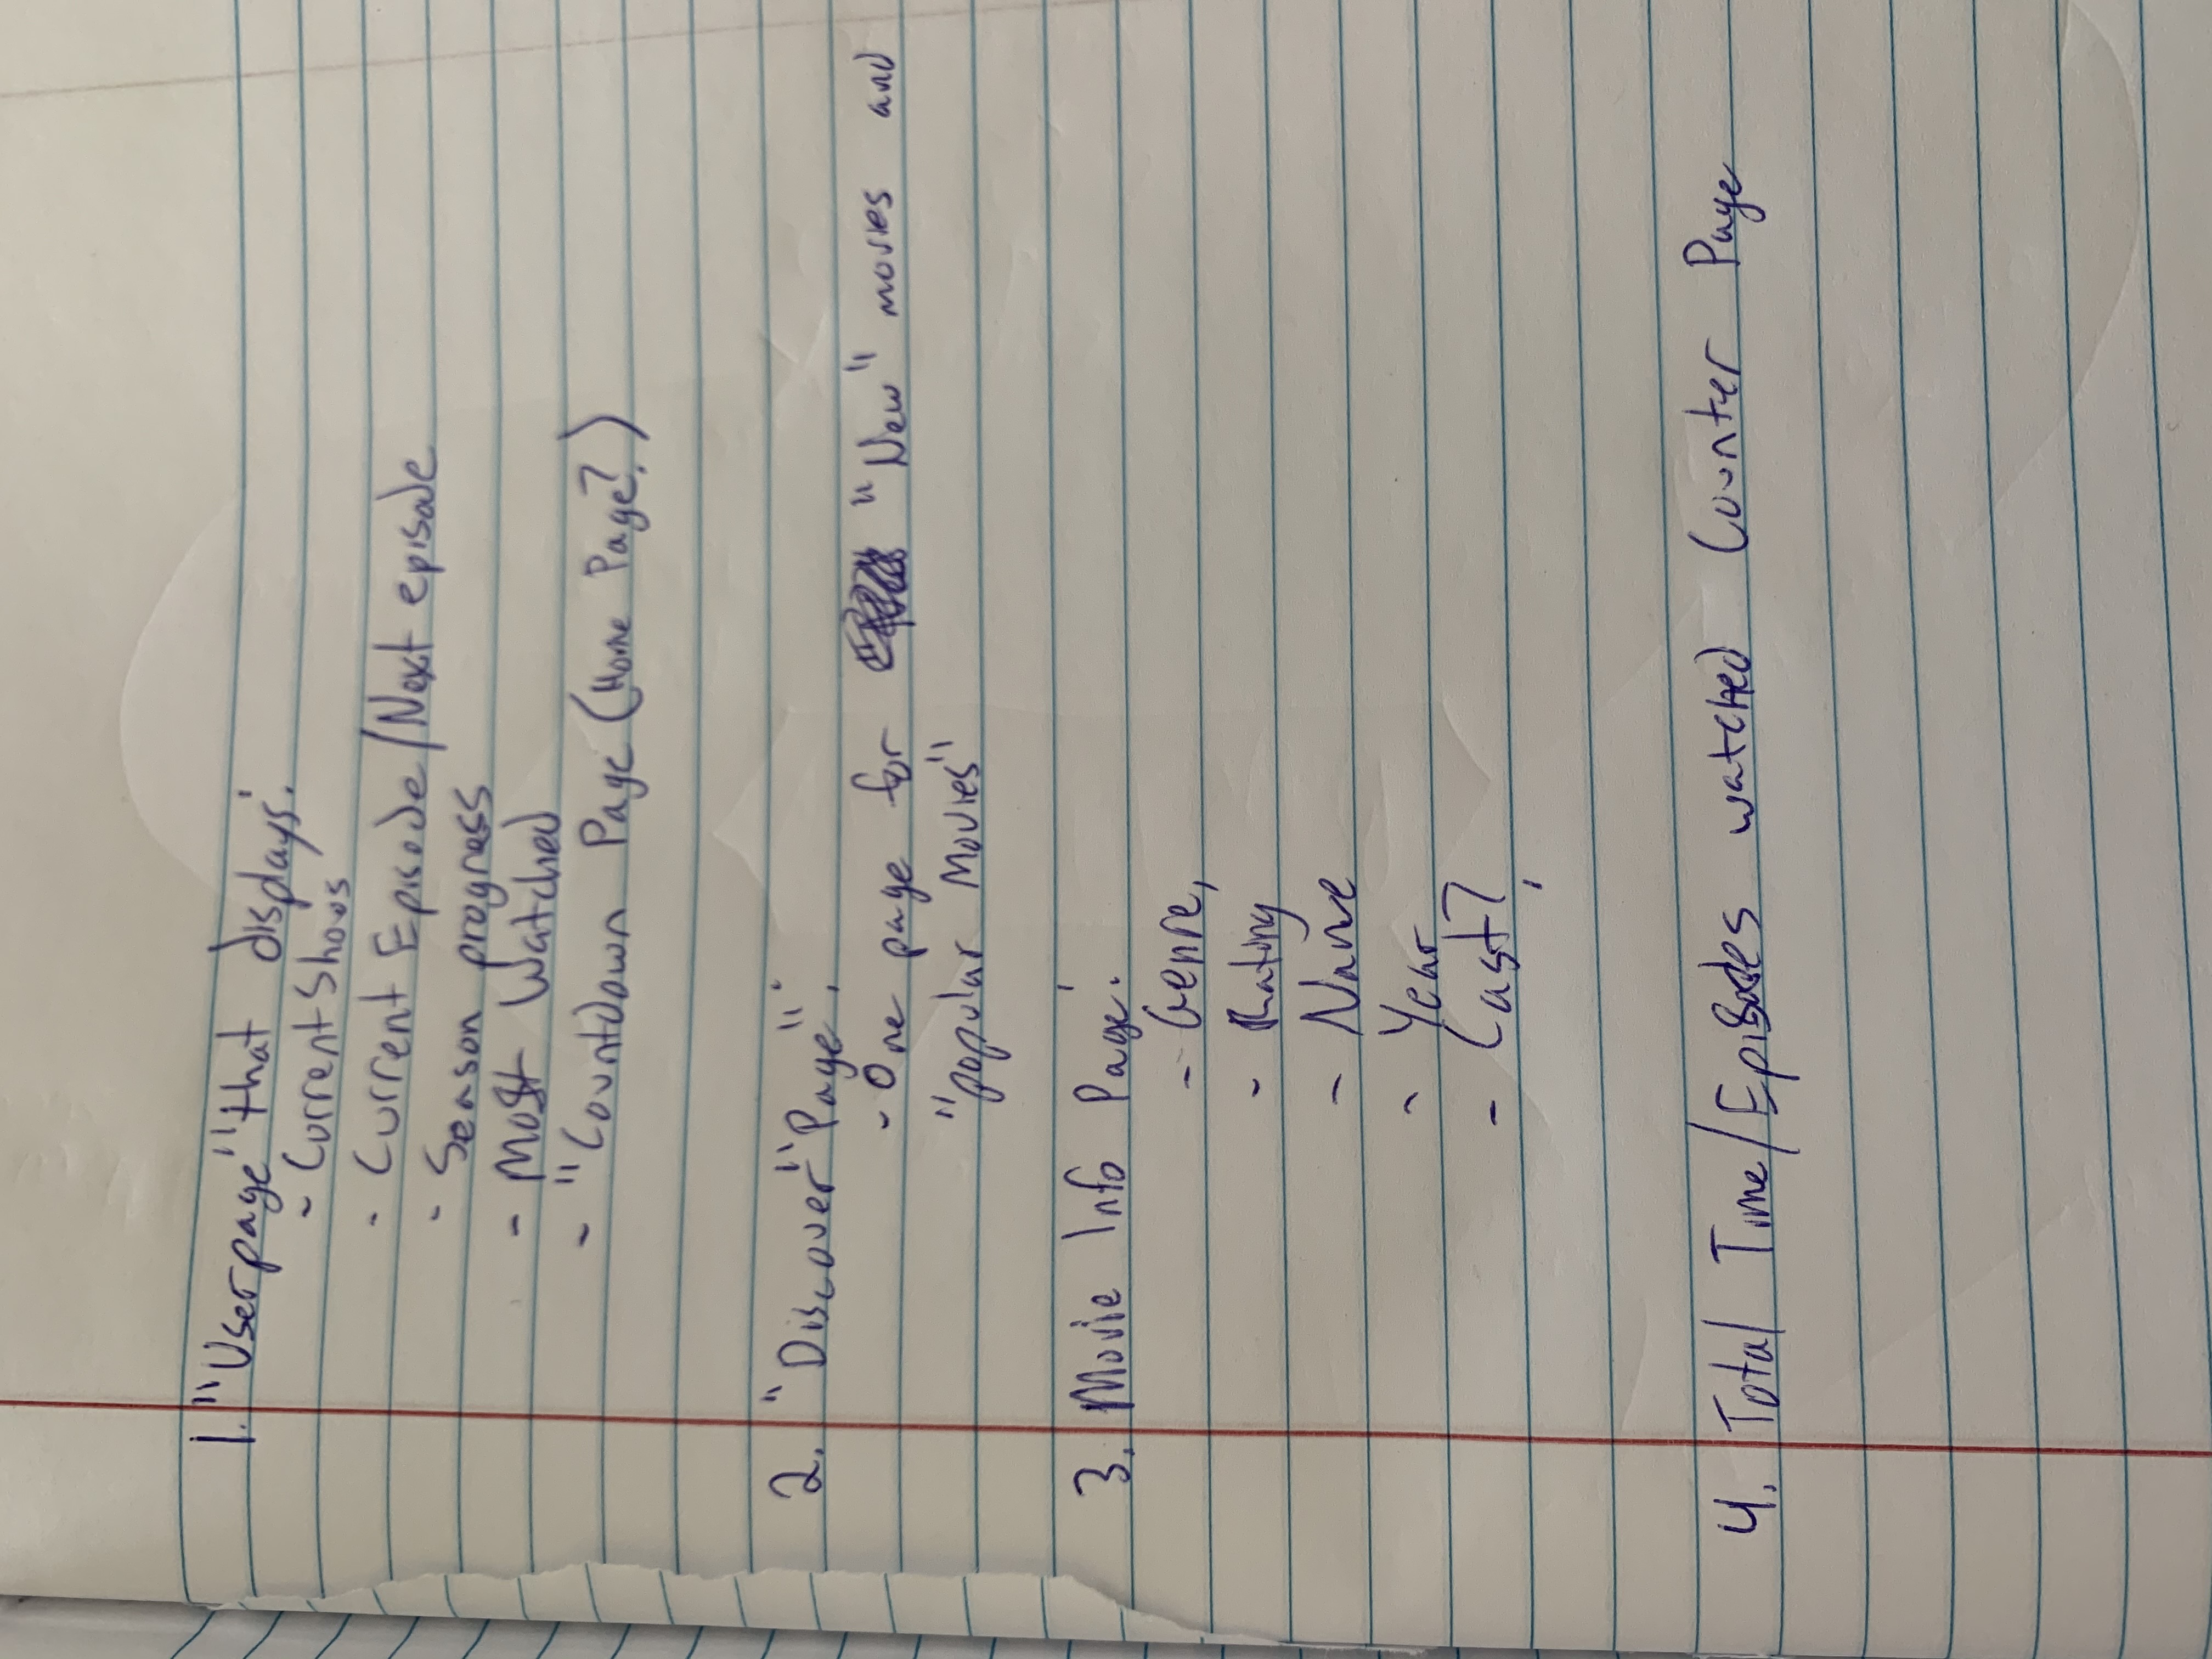 1. "Userpage" that displays:
- Current Shows
- Current Episode/Next episode
- Season progress
- Most Watched
- "Countdown Page (Home Page?)
2. "Discover" Page":
- One page for "New" movies and
"popular Movies"
3. Movie Info Page:
- Genre,
- Rating
- Name
- Year
- Cast?
4. Total Time/Episodes watched Counter Page